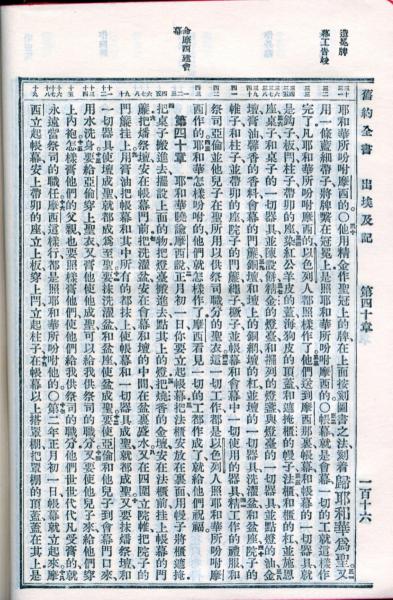 造冕牌
幕工告竣
命摩西建會
幕
舊約全書 出埃及記 第四十章 一百十六
耶和華所吩咐摩西的○他用精金作聖冠上的牌在上面按刻圖書之法刻着歸耶和華爲聖又
用一條藍細帶子將牌繫在冠冕上是照耶和華所吩咐摩西的○帳幕就是會幕一切的工就這樣作
完了凡耶和華所吩咐摩西的以色列人都照樣作了他們送到摩西那裏帳幕和帳幕的一切器具就
是鈎子板閂柱子帶卯的座染紅公羊皮的蓋海狗皮的頂蓋和遮掩櫃的幔子法櫃和櫃的杠並施恩
座桌子和桌子的一切器具並陳設餅精金的燈臺和擺列的燈盞與燈臺的一切器具並點燈的油金
壇膏油馨香的香料會幕的門簾銅壇和壇上的銅網壇的杠並壇的一切器具洗濯盆和盆座院子的
帷子和柱子並帶卯的座院子的門簾繩子橛子並帳幕和會幕中一切使用的器具精工作的禮服和
祭司亞倫並他兒子在聖所用以供祭司職分的聖衣這一切工作都是以色列人照耶和華所吩咐摩
西作的耶和華怎樣吩咐的他們就怎樣作了摩西看見一切的工都作成了就給他們祝福
第四十章 耶和華曉諭摩西說正月初一日你要立起帳幕把法櫃安放在裏面用幔子將櫃遮掩
把桌子搬進去擺設上面的物把燈臺搬進去點其上的燈把燒香的金壇安在法櫃前掛上帳幕的門
簾把燔祭壇安在帳幕門前把洗濯盆安在會幕和壇的中間在盆裏盛水又在四圍立院帷把院子的
門簾掛上用膏油把帳幕和其中所有的都抹上使帳幕和一切器具成聖就都成聖又要抹燔祭壇和
一切器具使壇成聖就都成爲至聖要抹洗濯盆和盆座使盆成聖要使亞倫和他兒子到會幕門口來
用水洗身要給亞倫穿上聖衣又膏他使他成聖可以給我供祭司的職分又要使他兒子來給他們穿
上內袍怎樣膏他們的父親也要照樣膏他們使他們給我供祭司的職分他們世世代代凡受膏的就
永遠當祭司的職任摩西這樣行都是照耶和華所吩咐他的○第二年正月初一日帳幕就立起來摩
西立起帳幕安上帶卯的座立上板穿上閂立起柱子在帳幕以上搭罩棚把罩棚的頂蓋蓋在其上是